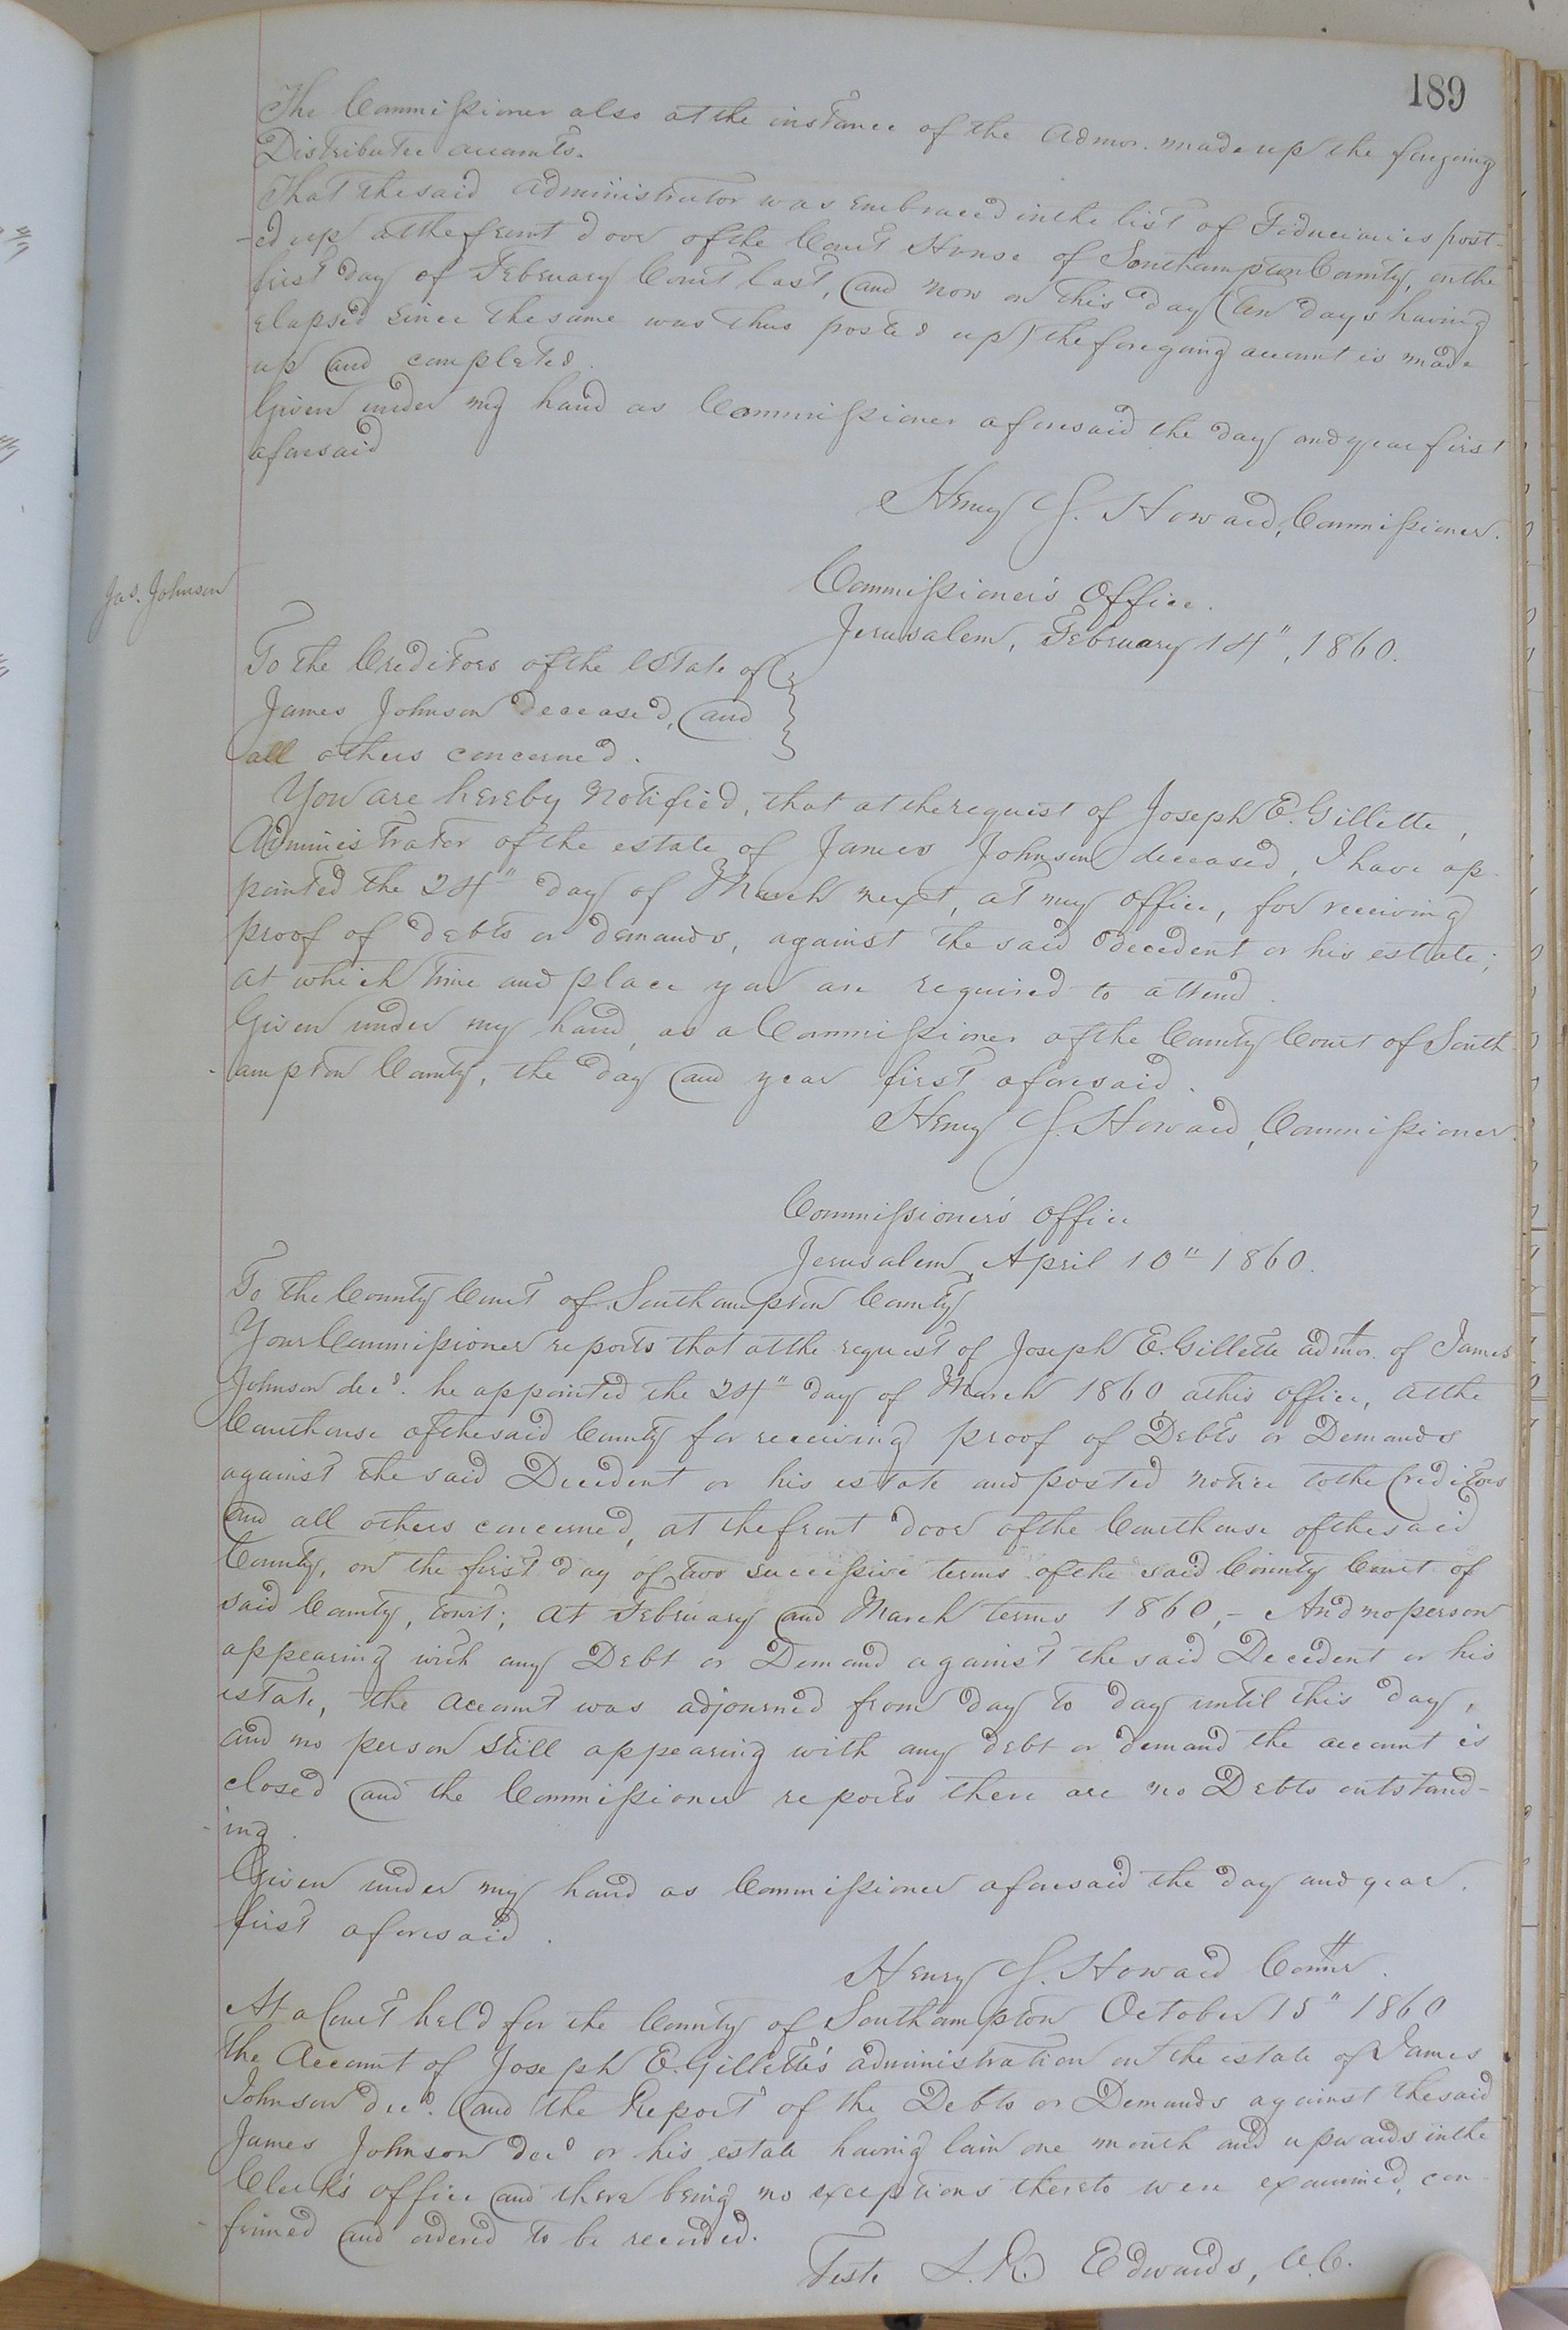 189
The Commissioner also at the instance of the Admor. made up the foregoing
Distributee accounts.
That the said Administrator was embraced in the list of Fiduciaries post-
-ed up at the front door of the Court House of Southampton County, on the
first day of February Court last, and now on this day (ten days having
elapsed since the same was thus posted up) the foregoing account is made
up and completed.
Given under my hand as Commissioner aforesaid the day and year first
aforesaid
Henry S. Howard, Commissioner.
Jas. Johnson
Commissioner's Office.
Jerusalem, February 14", 1860.
To the Creditors of the Estate of
James Johnson deceased, and
all others concerned.
You are hereby notified, that at the request of Joseph E. Gillette,
Administrator of the estate of James Johnson deceased, I have ap-
pointed the 24" day of March next, at my office, for receiving
proof of debts or demands, against the said decedent or his estate;
at which time and place you are required to attend.
Given under my hand, as a Commissioner of the County Court of South-
-ampton County, the day and year first aforesaid.
Henry S. Howard, Commissioner.
Commissioner's Office
Jerusalem, April 10" 1860.
To the County Court of Southampton County
Your Commissioner reports that at the request of Joseph E. Gillette admor. of James
Johnson decd. he appointed the 24" day of March 1860 at his office, at the
Courthouse of the said County for receiving proof of Debts or Demands
against the said Decedent or his estate and posted notice to the Creditors
and all others concerned, at the front door of the Courthouse of the said
County, on the first day of two successive terms of the said County Court of
said County, towit; at February and March terms 1860,- And no person
appearing with any Debt or Demand against the said Decedent or his
estate, the account was adjourned from day to day until this day,
and no person still appearing with any debt or demand the account is
closed and the Commissioner reports there are no Debts outstand-
-ing.
Given under my hand as Commissioner aforesaid the day and year.
first aforesaid.
Henry S. Howard Commr.
At a Court held for the County of Southampton October 15" 1860
The Account of Joseph E. Gillette's administration on the estate of James
Johnson decd. and the Report of the Debts or Demands against the said
James Johnson decd or his estate having lain one month and upwards in the
Clerk's office and there being no exceptions thereto were examined, con-
-firmed and ordered to be recorded.
Teste L. R. Edwards, C. C.